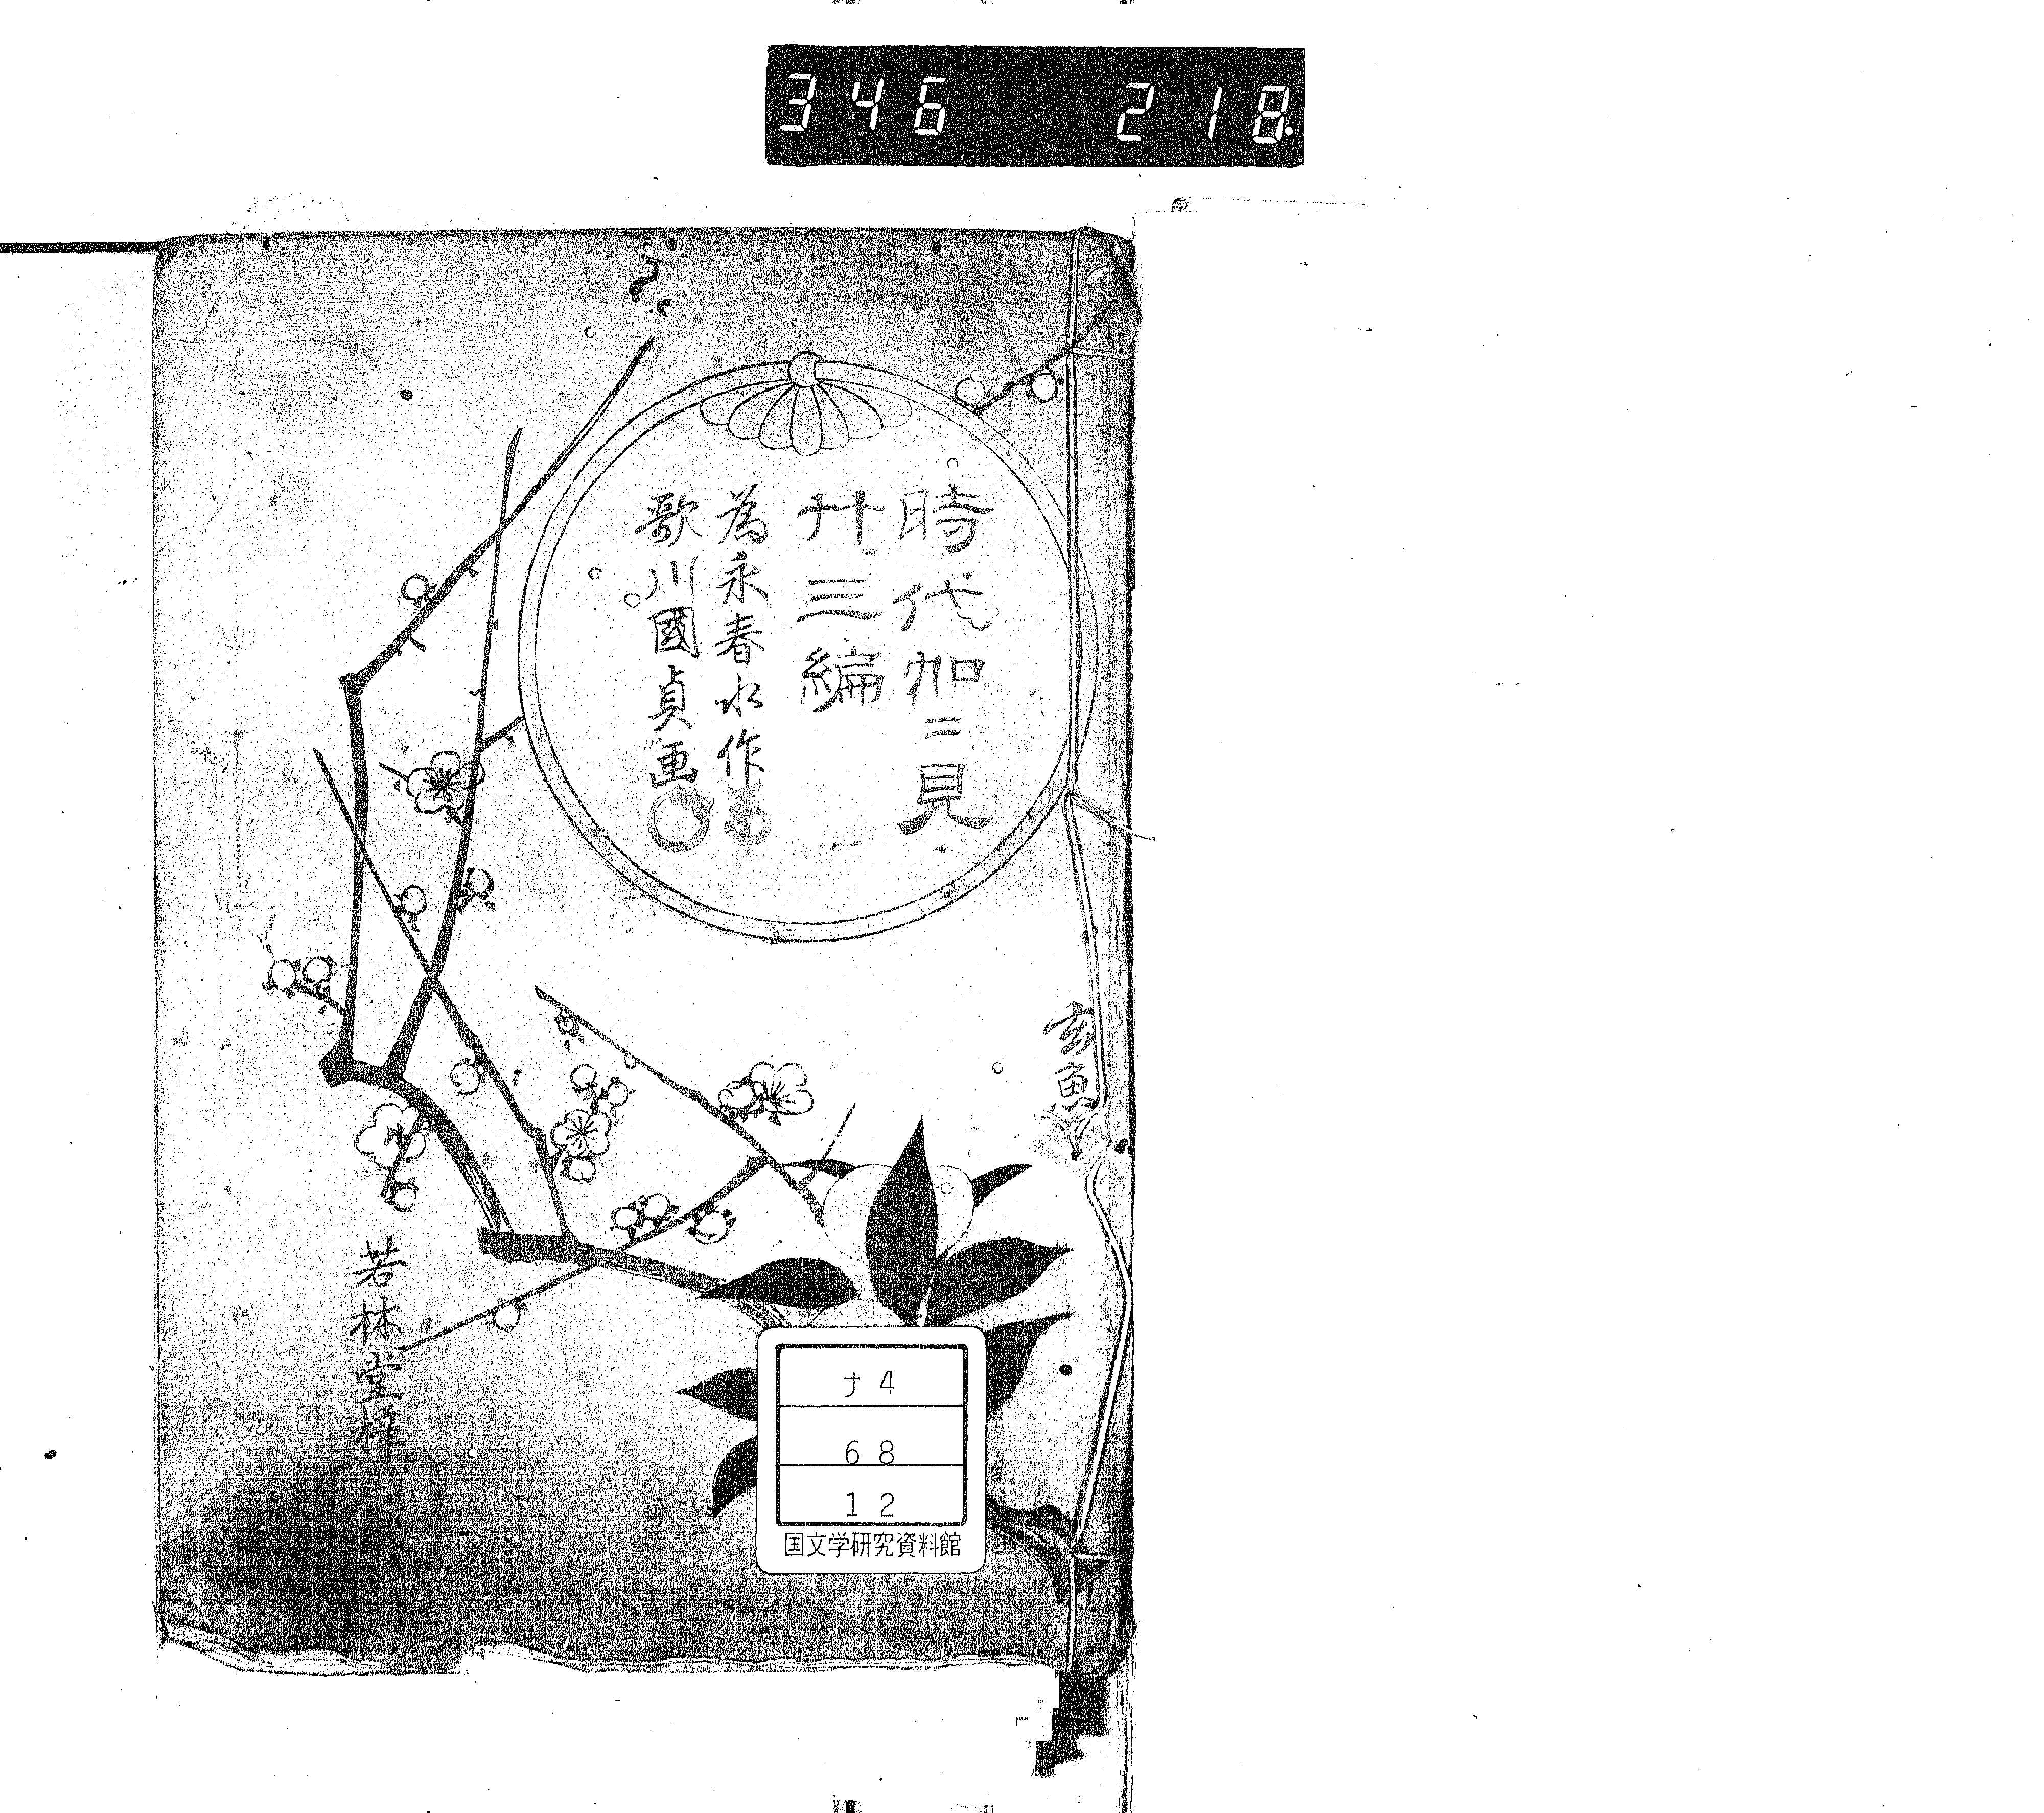 346 218.
時代加ニ見
廾三編
為永春水作
歌川國貞画
玄魚
若林堂梓
ナ4
68
12
国文学研究資料館